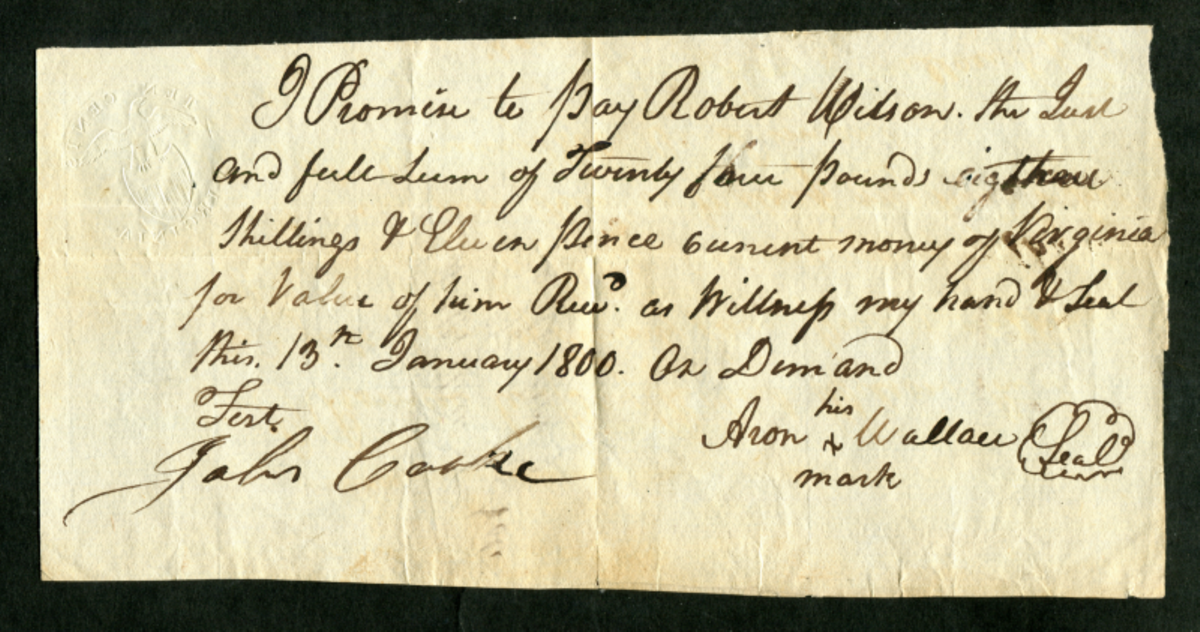 I Promise to pay Robert Wilson. the Just
and full Sum of Twenty four pounds eigtheen
Shillings & Eleven pence current money of Virginia
for Value of him Recd. as Wittness my hand & Seal
this. 13th. January 1800. On Demand
Test.
his
Aron x Wallace Seal
mark
John Cooke